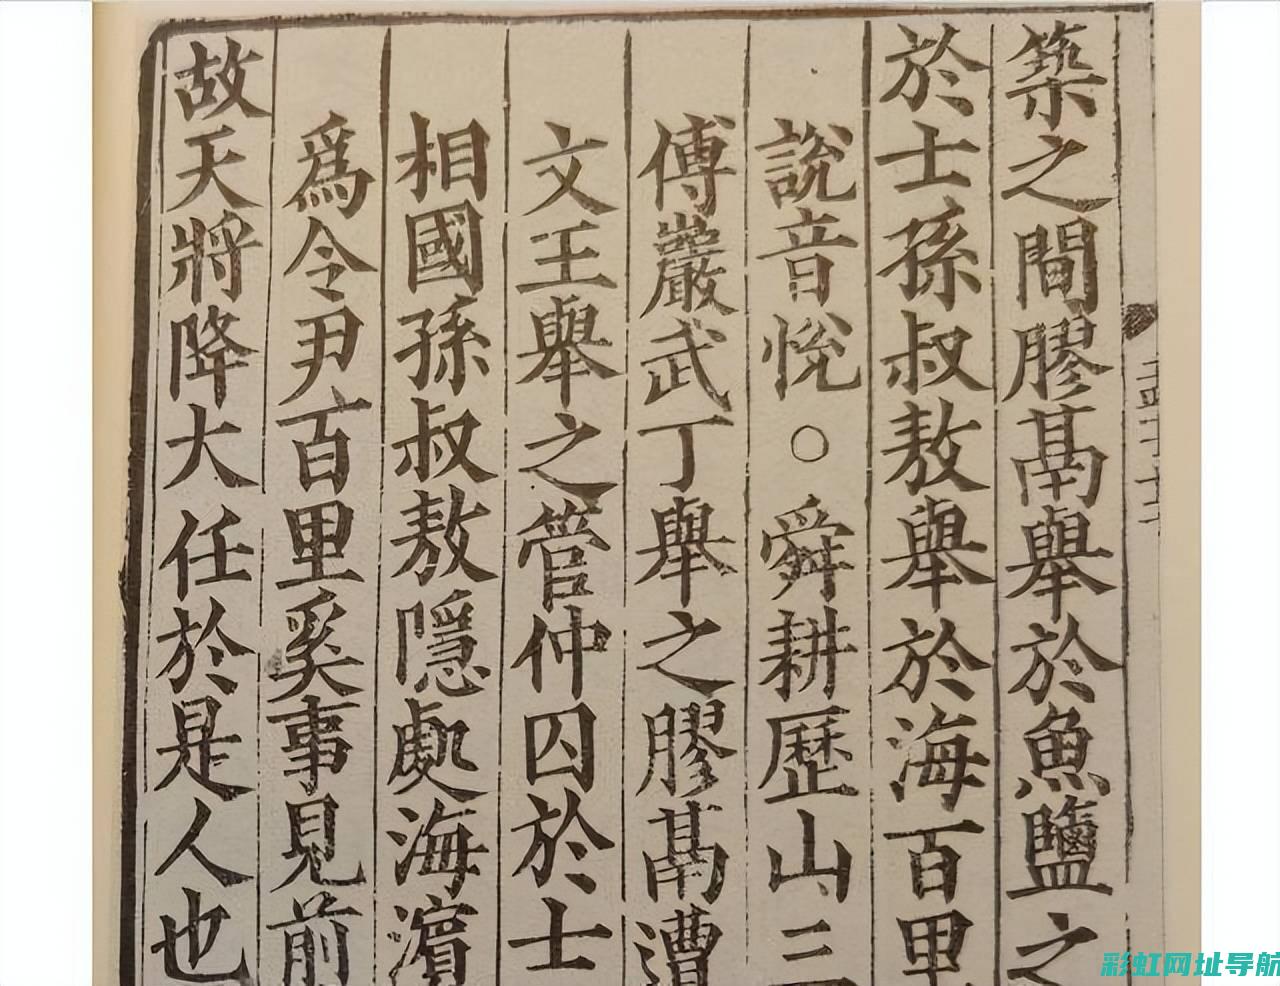 築之間膠鬲舉於魚鹽之
於士孫叔敖舉於海百里
說音悅○舜耕歷山三
傅巖武丁舉之膠鬲遭
文王舉之管仲囚於士
相國孫叔敖隱處海濱
爲令尹百里奚事見前
故天將降大任於是人也
彩虹网址导航